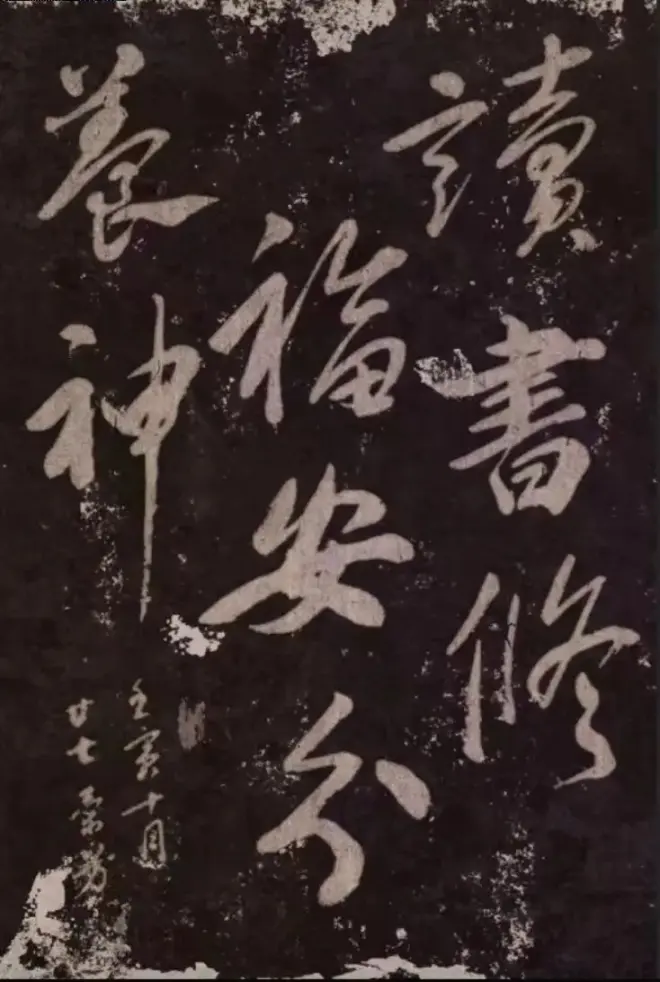 讀書修
福安分
養神
壬寅十月
廿七